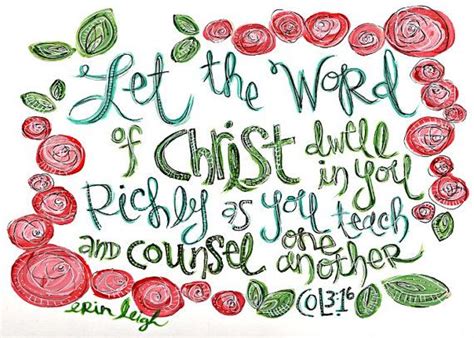 Let the Word
of Christ dwell
in you
Richly as you teach
and counsel one
another
COL 3:16
erin leigh